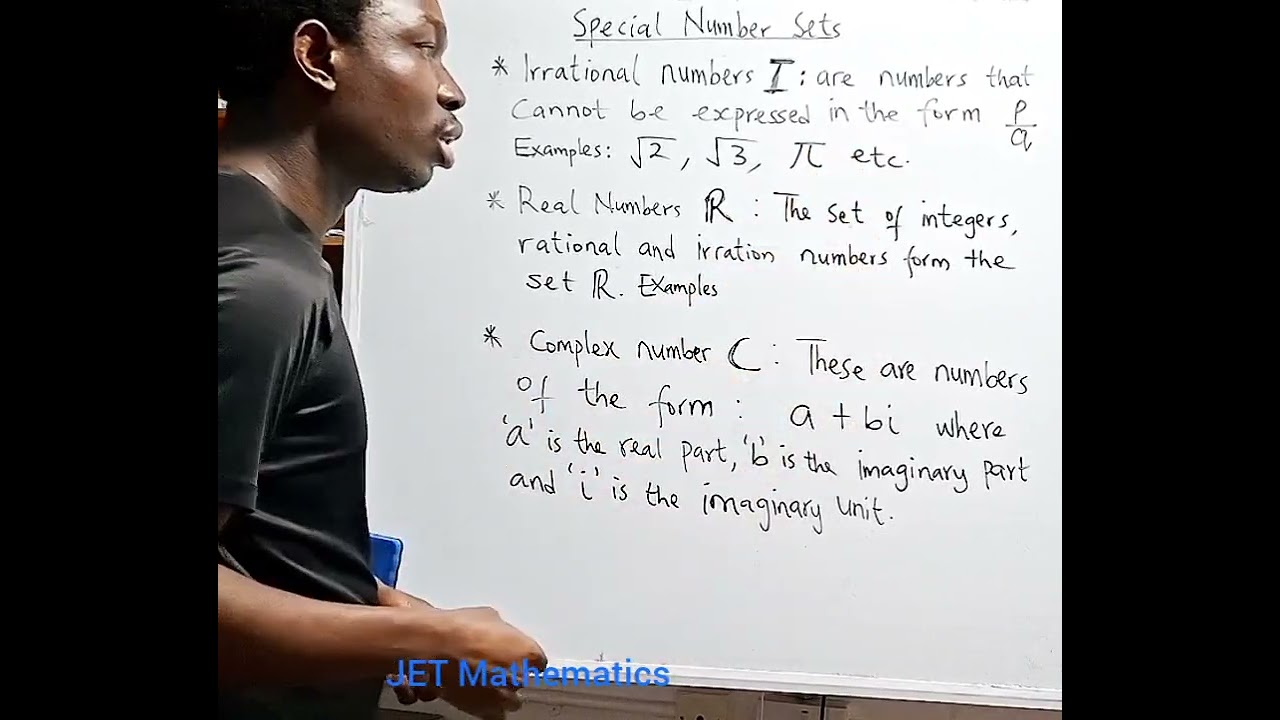 Special Number Sets
* Irrational numbers I : are numbers that
Cannot be expressed in the form p/q
Examples: √2, √3, π etc.
* Real Numbers ℝ : The set of integers,
rational and irration numbers form the
set ℝ. Examples
* Complex number C : These are numbers
of the form : a + bi where
'a' is the real part, 'b' is the imaginary part
and 'i' is the imaginary unit.
JET Mathematics